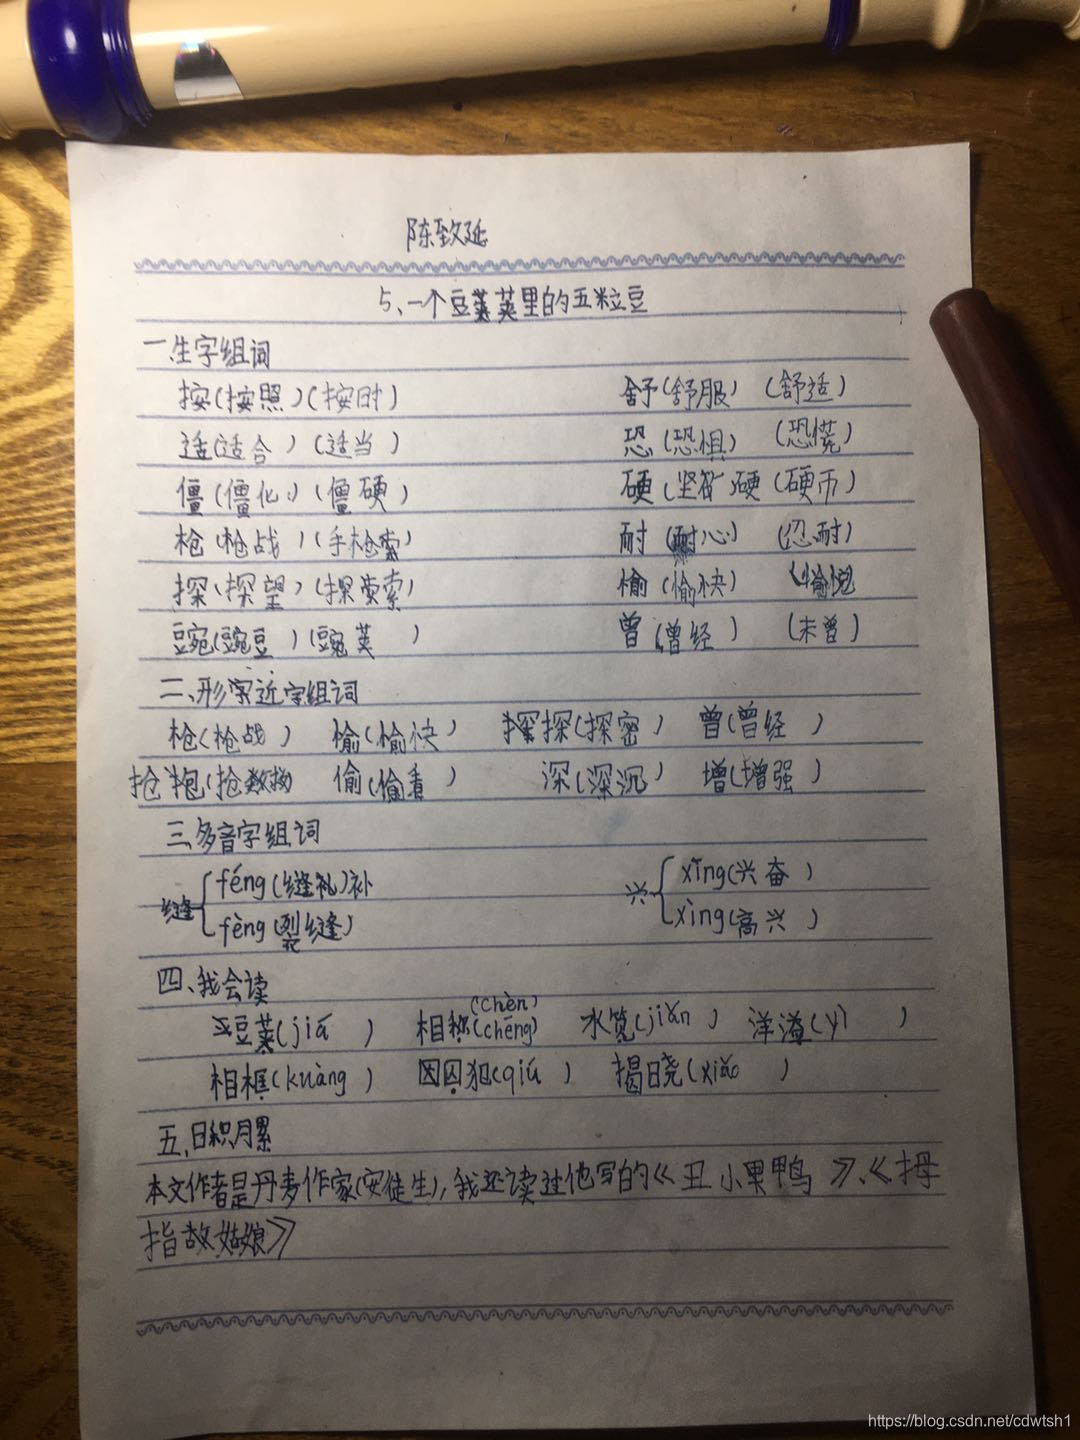 陈致延
5、一个豆荚荚里的五粒豆
一.生字组词
按(按照)(按时) 舒(舒服) (舒适)
适(适合) (适当) 恐(恐惧) (恐慌)
僵(僵化)(僵硬) 硬(坚硬)硬(硬币)
枪(枪战)(手枪) 耐(耐心) (忍耐)
探(探望)(探索) 愉(愉快) (愉悦)
豌(豌豆)(豌荚) 曾(曾经) (未曾)
二、形近字组词
枪(枪战) 愉(愉快) 探探(探密) 曾(曾经)
抢抱(抢救) 偷(偷看) 深(深沉) 增(增强)
三、多音字组词
缝 féng(缝补)补 兴 xīng(兴奋)
fèng(裂缝) xìng(高兴)
四、我会读
(chèn)
豆荚(jiá) 相称(chēng) 水笕(jiǎn) 洋溢(yì)
相框(kuàng) 囚犯(qiú) 揭晓(xiǎo)
五、日积月累
本文作者是丹麦作家(安徒生),我还读过他写的《丑小鸭》、《拇
指姑娘》
https://blog.csdn.net/cdwtsh1